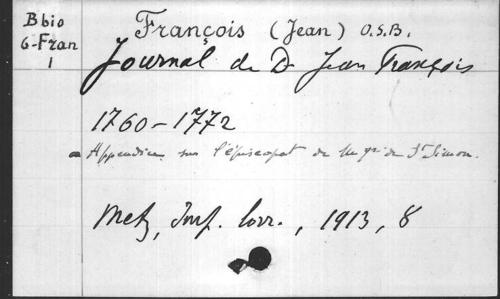 B bio
6-Fran
1
François (Jean) O.S.B.
Journal de D. Jean François
1760-1772
Appendice sur l'épiscopat de Mgr de St Simon.
Metz, Imp. lorr., 1913, 8